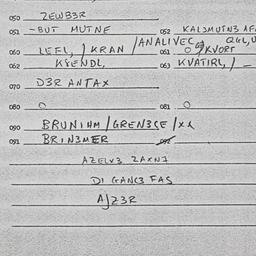 050 ZEWB3R
051 -BUT MUTNE 052 KALSMUTNS AF
060 LEFL, / KRAN / ANALIVEC 061 O / KVORT QGL,U
062 KSENDL, 063 KVATIRL, / _
070 D3R ANTAX
080 O 081 O
090 BRUNINM / GREN3SE / XX
091 BRIN3MER 092
AZELV3 ZAXN7
DI GANG3 FAS
AJZ3R